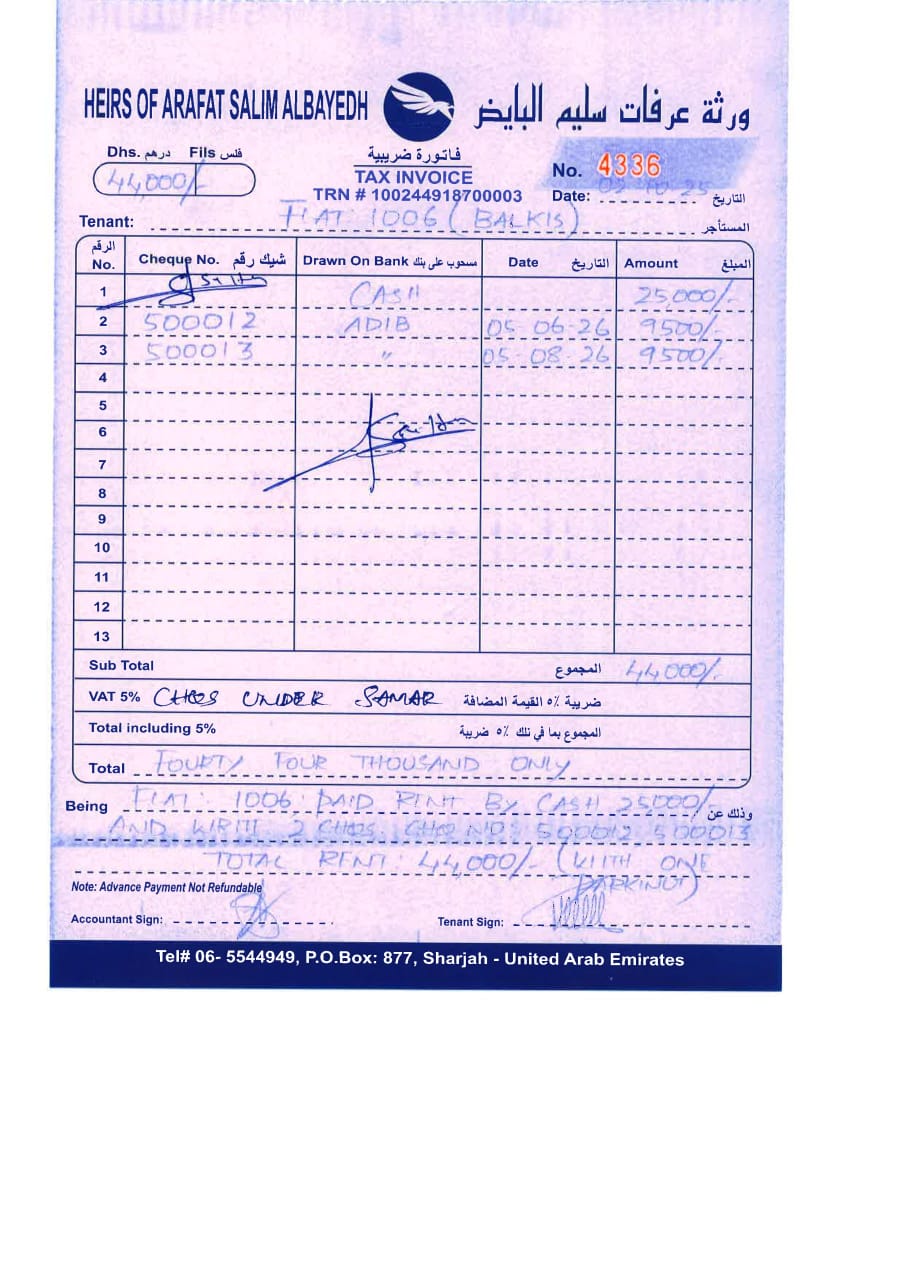 HEIRS OF ARAFAT SALIM ALBAYEDH ورثة عرفات سليم البايض
Dhs. درهم Fils فلس
44,000/-
فاتورة ضريبية
TAX INVOICE
TRN # 100244918700003
No. 4336
Date: التاريخ
Tenant: FLAT: 1006 (BALKIS) المستأجر
الرقم No. Cheque No. شيك رقم Drawn On Bank مسحوب على بنك Date التاريخ Amount المبلغ
1 CASH 25,000/-
2 500012 ADIB 05-06-26 9500/-
3 500013 " 05-08-26 9500/-
4
5
6
7
8
9
10
11
12
13
Sub Total المجموع 44,000/-
VAT 5% CHQS UNDER SAMAR ضريبة ٥٪ القيمة المضافة
Total including 5% المجموع بما في ذلك ٥٪ ضريبة
Total FOURTY FOUR THOUSAND ONLY
Being FLAT: 1006: PAID RENT BY CASH 25000/- وذلك عن
AND WRITT 2 CHQS. CHQ NO: 500012, 500013
TOTAL RENT: 44,000/- (WITH ONE
PARKING)
Note: Advance Payment Not Refundable
Accountant Sign: Tenant Sign:
Tel# 06- 5544949, P.O.Box: 877, Sharjah - United Arab Emirates